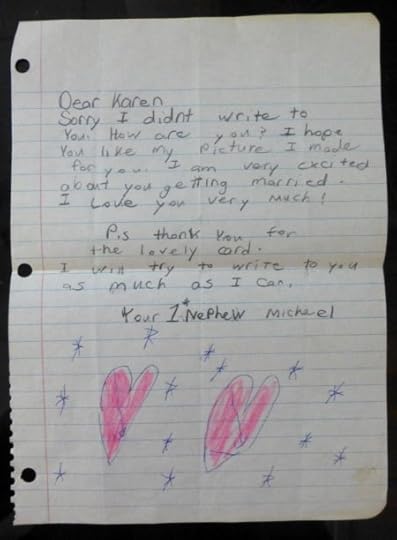 Dear Karen
Sorry I didnt write to
You. How are you? I hope
You like my Picture I made
for you. I am very excited
about you getting married.
I Love you very much!
P.s thank You for
the lovely card.
I will try to write to you
as much as I can.
Your 1* Nephew Michael